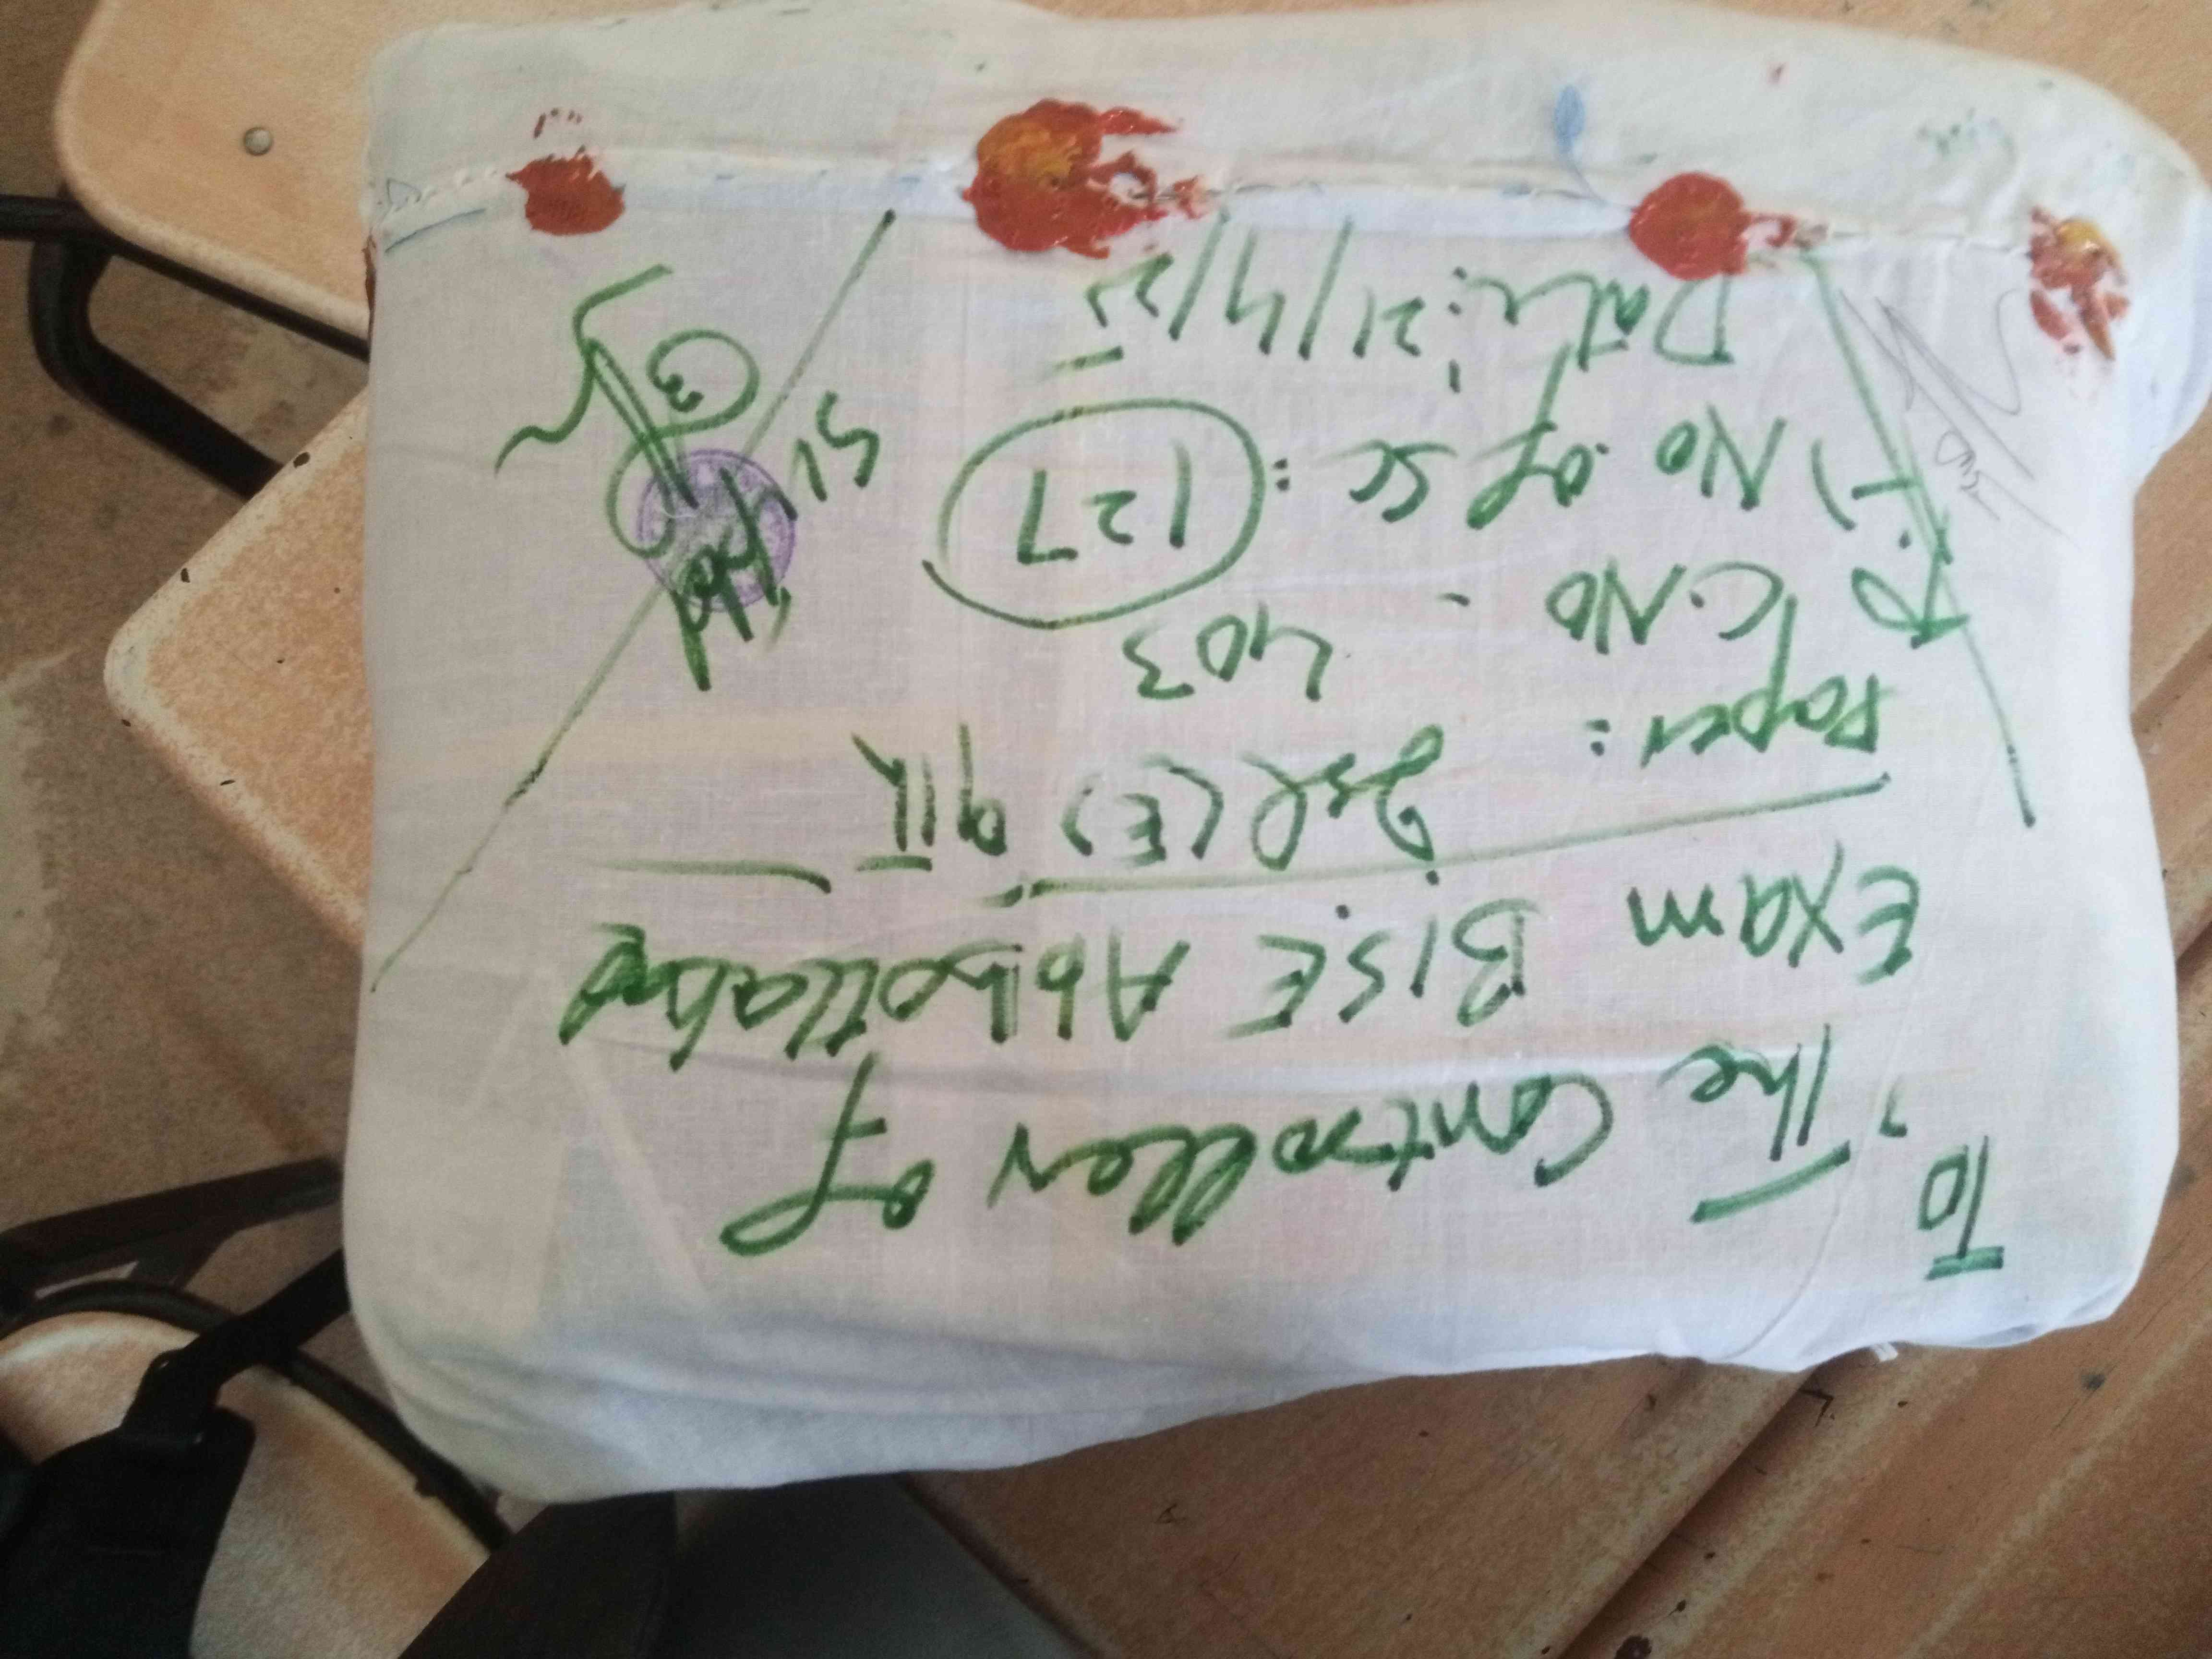 To,
The Controller of
Exam BISE Abbottabad
Paper: Isl (E) 9th
C.No 403
No of SC : 127
Date: 21/4/25